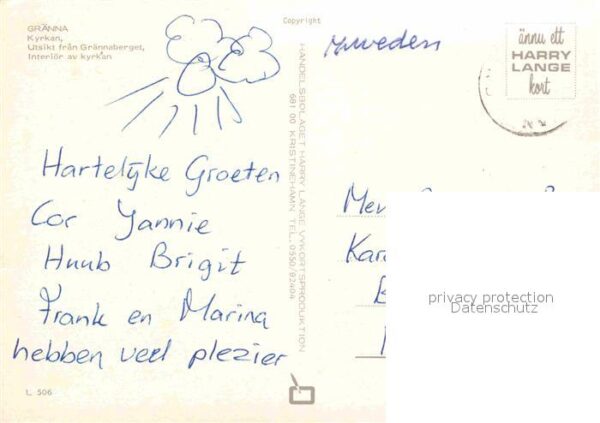 GRÄNNA
Kyrkan,
Utsikt från Grännaberget,
Interiör av kyrkan
Copyright
ännu ett
HARRY
LANGE
kort
HANDELSBOLAGET HARRY LANGE VYKORTSPRODUKTION
681 00 KRISTINEHAMN TEL. 0550/82404
Hartelijke Groeten
Cor Yannie
Huub Brigit
Frank en Marina
hebben veel plezier
L 506
privacy protection
Datenschutz